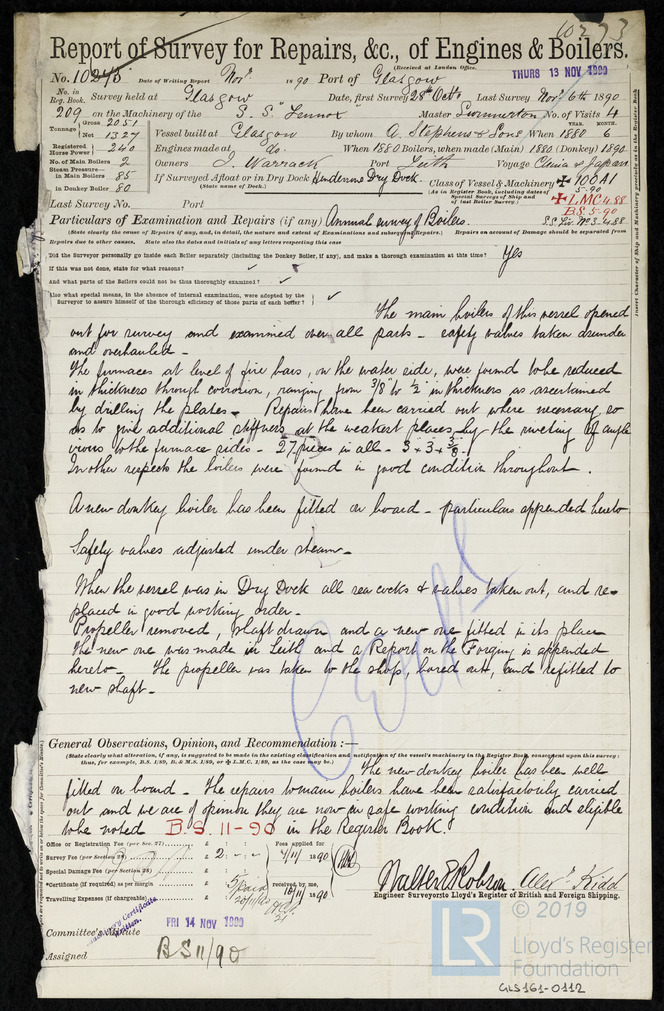 10273
Report of Survey for Repairs, &c., of Engines & Boilers.
(Received at London Office.
No. 10273 Date of Writing Report Novr. 1890 Port of Glasgow THURS 13 NOV 1890
No. in Reg. Book. Survey held at Glasgow Date, first Survey 28th Octr. Last Survey Novr. 6th 1890
209 on the Machinery of the S. S. "Lennox" Master No. of Visits 4
Tonnage Gross 2051 Net 1327 Vessel built at Glasgow By whom A. Stephens & Sons, When YEAR. 1880 MONTH. 6
Registered Horse Power 240 Engines made at do. When 1880 Boilers, when made (Main) 1880 (Donkey) 1890
No. of Main Boilers 2 Owners J. Warrack Port Leith Voyage China & Japan
Steam Pressure— in Main Boilers 85 If Surveyed Afloat or in Dry Dock Hendersons Dry Dock
(State name of Dock.)
in Donkey Boiler 80 Class of Vessel & Machinery ✠ 100A1
(As in Register Book, including dates of Special Surveys of Ship and of last Boiler Survey.)
5-90
✠ LMC 4.88
B.S 5-90
S.S. Liv. No. 3-4.88
Last Survey No. Port
Particulars of Examination and Repairs (if any) Annual survey of Boilers.
(State clearly the cause of Repairs if any, and, in detail, the nature and extent of Examinations and subsequent Repairs.) Repairs on account of Damage should be separated from
Repairs due to other causes. State also the dates and initials of any letters respecting this case
Did the Surveyor personally go inside each Boiler separately (including the Donkey Boiler, if any), and make a thorough examination at this time? Yes
If this was not done, state for what reasons? ✓
And what parts of the Boilers could not be thus thoroughly examined? ✓
Also what special means, in the absence of internal examination, were adopted by the
Surveyor to assure himself of the thorough efficiency of those parts of each boiler? ✓
The main boilers of this vessel opened
out for survey and examined over all parts - safety valves taken asunder
and overhauled -
The furnaces at level of fire bars, on the water side, were found to be reduced
in thickness through corrosion, ranging from 3/8" to 1/2" in thickness as ascertained
by drilling the plates - Repairs have been carried out where necessary, so
as to give additional stiffness at the weakest places, by the riveting of angle
irons to the furnace sides - 27 pieces in all - 3 x 3 x 3/8.
In other respects the boilers were found in good condition throughout.
A new donkey boiler has been fitted on board - particulars appended hereto
Safety valves adjusted under steam -
When the vessel was in Dry Dock all sea cocks & valves taken out, and re-
placed in good working order -
Propeller removed, shaft drawn and a new one fitted in its place
The new one was made in Leith and a Report on the Forging is appended
hereto - The propeller was taken to the shop, bored out, and refitted to
new shaft -
General Observations, Opinion, and Recommendation :—
(State clearly what alteration, if any, is suggested to be made in the existing classification and notification of the vessel's machinery in the Register Book, consequent upon this survey:
thus, for example, B.S. 1/89, B. & M.S. 1/89, or ✠ L.M.C. 1/89, as the case may be.)
The new donkey boiler has been well
fitted on board - The repairs to main boilers have been satisfactorily carried
out and we are of opinion they are now in safe working condition and eligible
to be noted B.S. 11-90 in the Register Book.
Office or Registration Fee (per Sec. 27) £ : : Fees applied for
Survey Fee (per Section 28) £ 2 : - : - 4/11/1890
Special Damage Fee (per Section 28) £ : :
*Certificate (if required) as per margin £ : : received by me,
Travelling Expenses (if chargeable) £ : : 10/11/1890
Walter E Robson. Alexr. Kidd
Engineer Surveyors to Lloyd's Register of British and Foreign Shipping.
Committee's Minute FRI 14 NOV 1890
Machinery Certificate Written.
Assigned BS 11/90
© 2019
LR
Lloyd's Register
Foundation
GLS161-0112